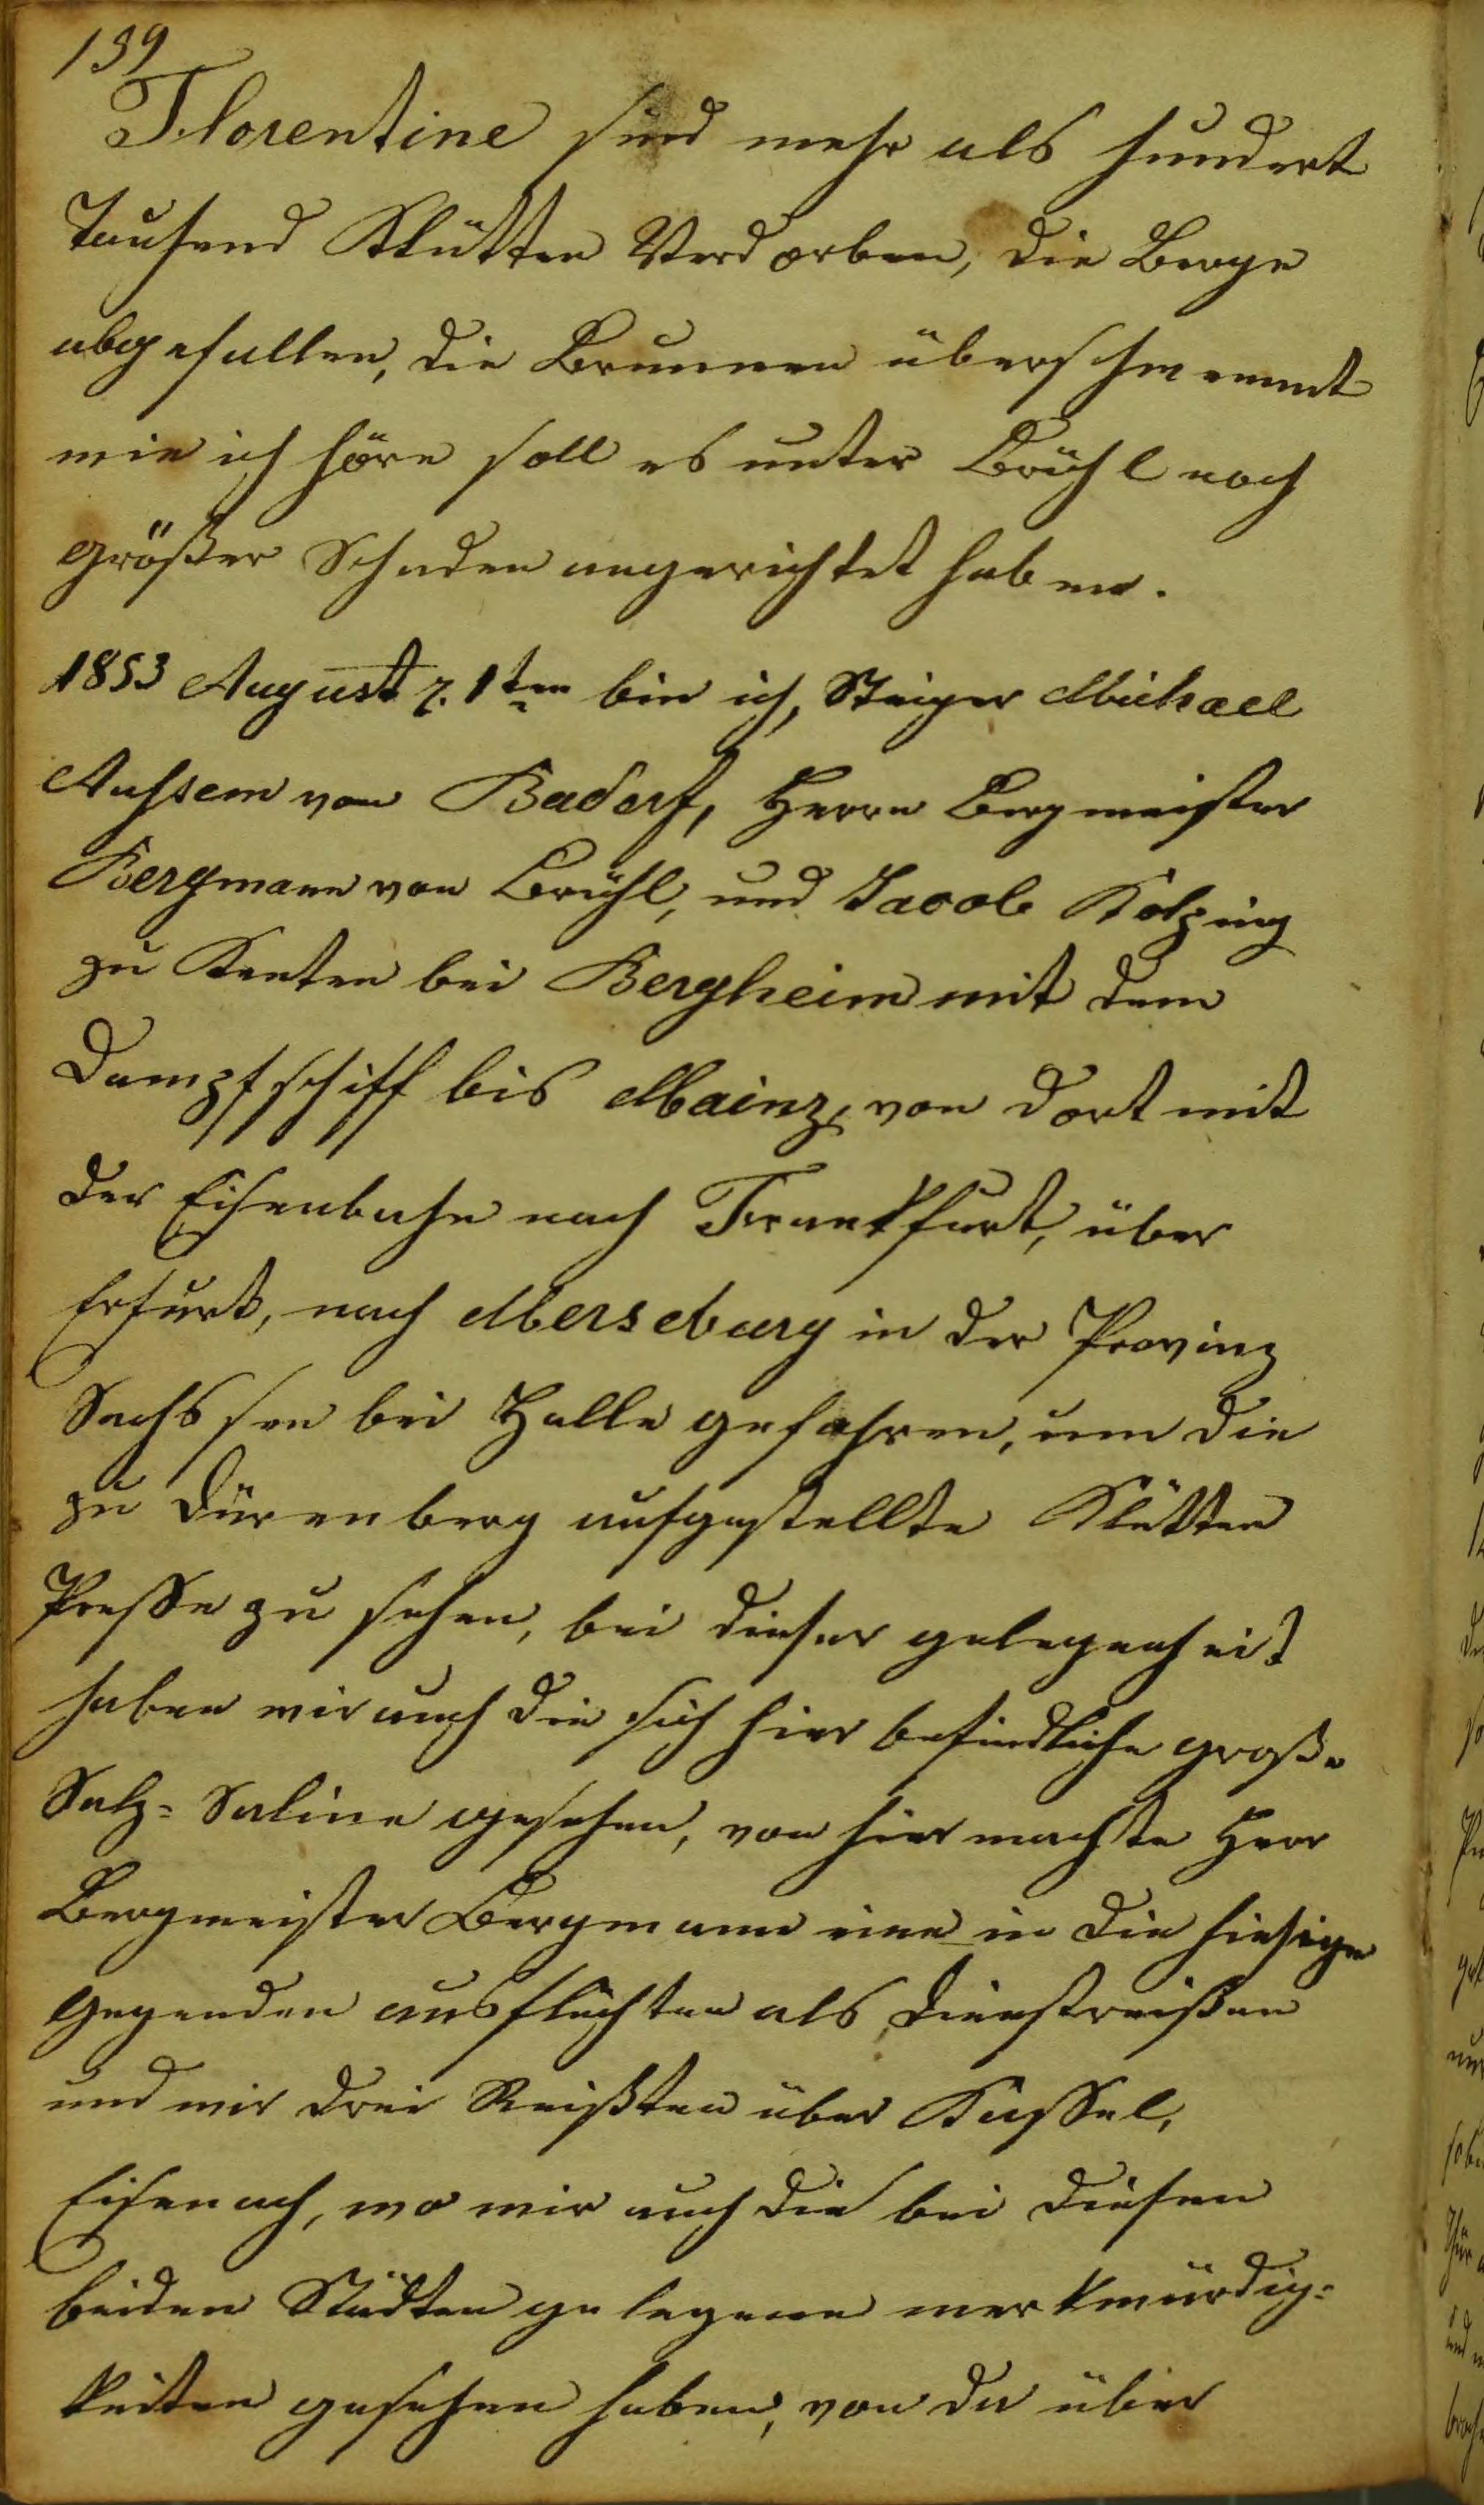 139
Florentine sind mehr als hundert
Tausend Klütten Verdorben, die Berge
abgefallen, die Brunnen überschwemmt
wie ich höre soll es unter Brühl noch
größer Schaden angerichtet haben.
1853 August z. 1ten bin ich, Steiger Michael
Aussem von Badorf, Herrn Bergmeister
Bergmann von Brühl, und Jacob Kolping
zu Kenten bei Bergheim mit dem
Dampfschiff bis Mainz, von dort mit
der Eisenbahn nach Frankfurt, über
Erfurt, nach Merseburg in der Provinz
Sachssen bei Halle gefahren, um die
zu Dürenberg aufgestellte Klütten
Presse zu sehen, bei dieser gelegenheit
haben wir auch die sich hier befindliche große
Salz-Saline gesehen, von hier machte Herr
Bergmeister Bergmann eine in die hiesige
Gegenden ausflüchten als Dienstreißen
und wir drei Reißten über Kassel,
Eisenach, wo wir auch die bei diesen
beiden Städten gelegene merkwürdig-
keiten gesehen haben, von da über